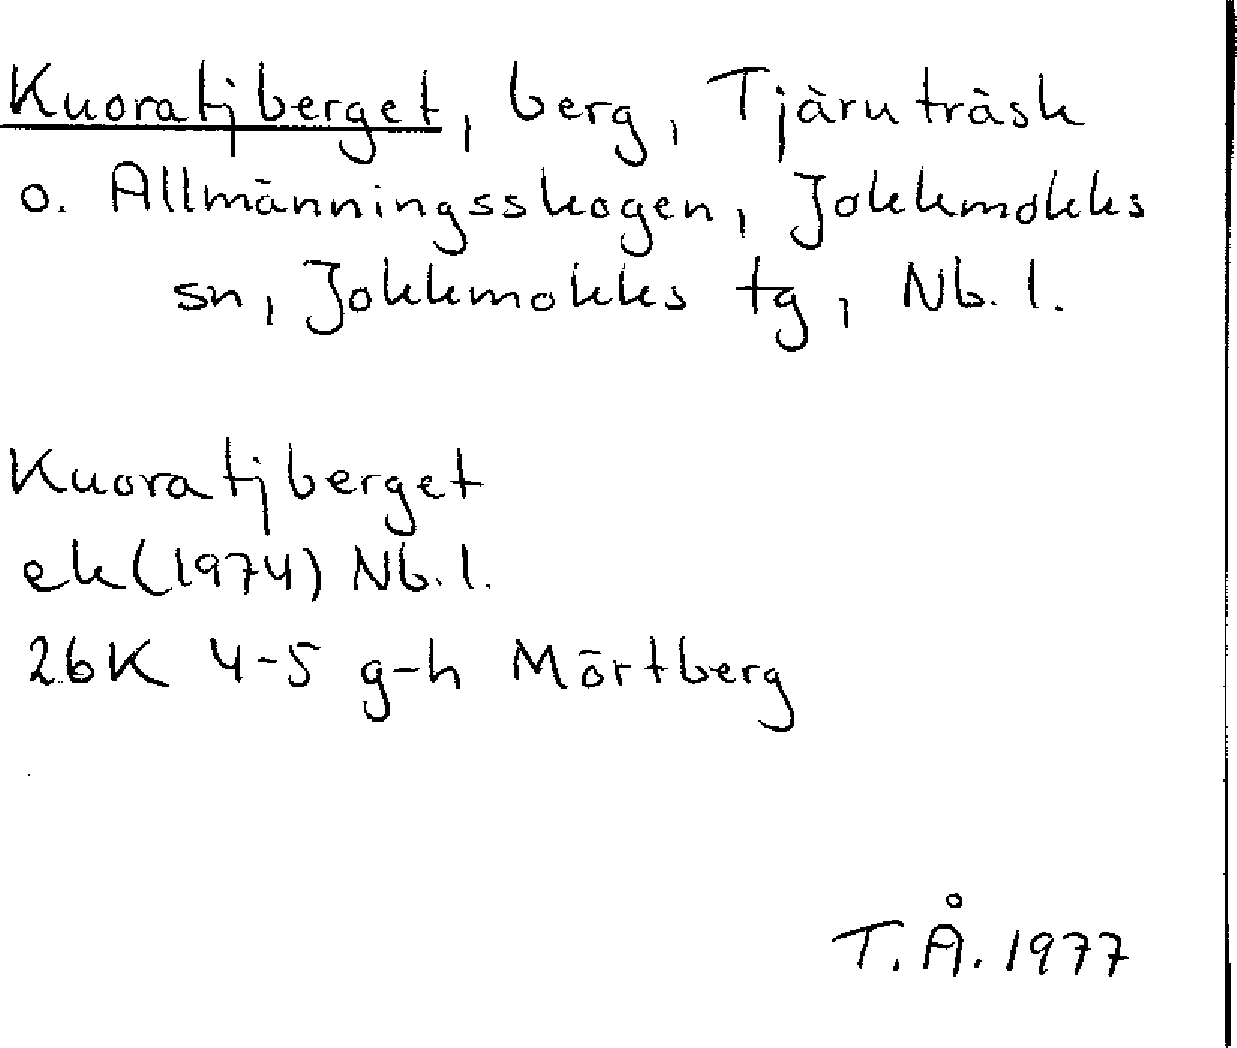 Kuoratjberget, berg, Tjäruträsk
o. Allmänningsskogen, Jokkmokks
sn, Jokkmokks tg, Nb. l.
Kuoratjberget
ek (1974) Nb. l.
26K 4-5 g-h Mörtberg
T. Å. 1977